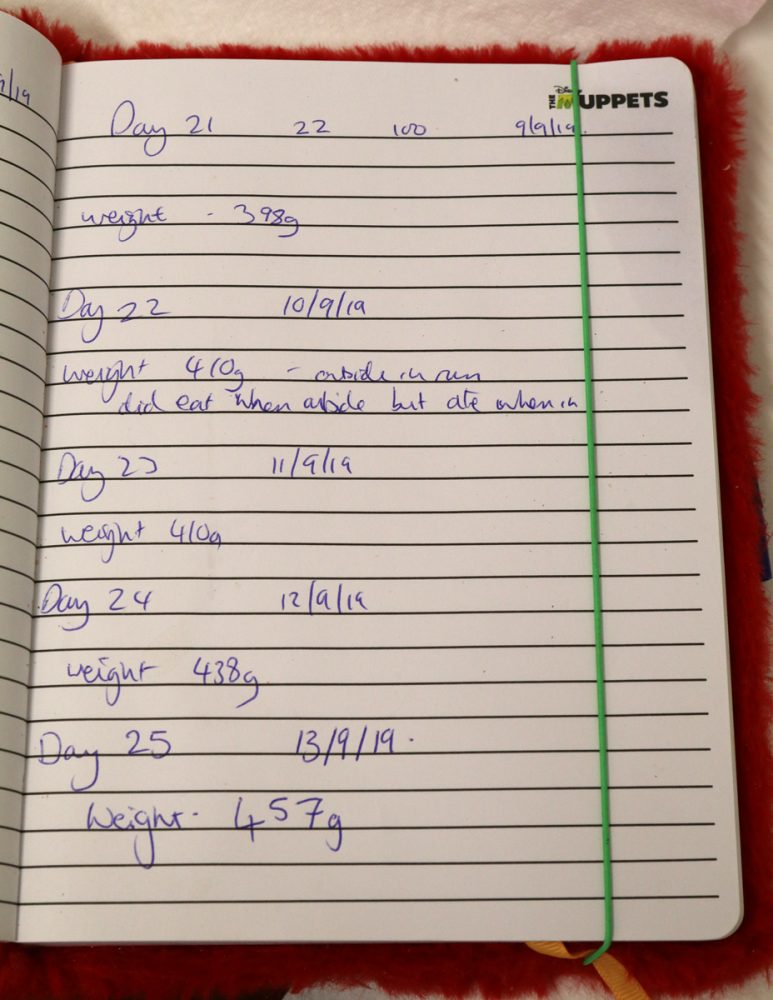 9/19
THE Disney MUPPETS
Day 21 22 100 9/9/19.
weight - 398g
Day 22 10/9/19
weight 410g - outside in run
did eat when outside but ate when in
Day 23 11/9/19
weight 410g
Day 24 12/9/19
weight 438g
Day 25 13/9/19.
Weight - 457g